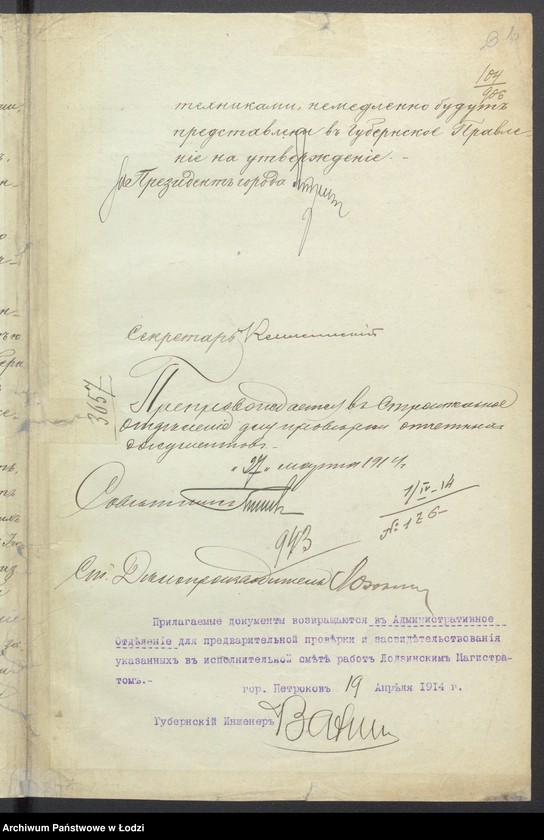 104
906
техниками, немедленно будутъ
представлены въ Губернское Правле-
ніе на утвержденіе.-
За Президентъ города
Секретарь
3657
Препровождается въ Строительное
Отдѣленіе для провѣрки отчетныхъ
документовъ.-
„27" марта 1914 г.
Совѣтникъ
1/IV-14
№ 126-
993
Ст. Дѣлопроизводитель
Прилагаемые документы возвращаются въ Административное
Отдѣленіе для предварительной провѣрки и засвидѣтельствованія
указанныхъ въ исполнительной смѣтѣ работъ Лодзинскимъ Магистра-
томъ.-
гор. Петроковъ 19 Апрѣля 1914 г.
Губернскій Инженеръ
Archiwum Państwowe w Łodzi